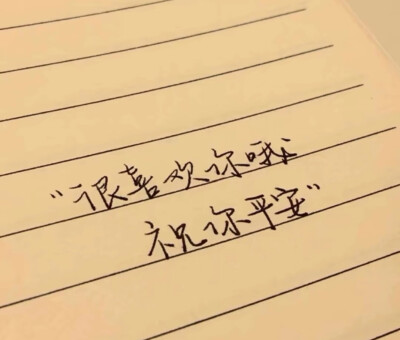 “很喜欢你哦
祝你平安”